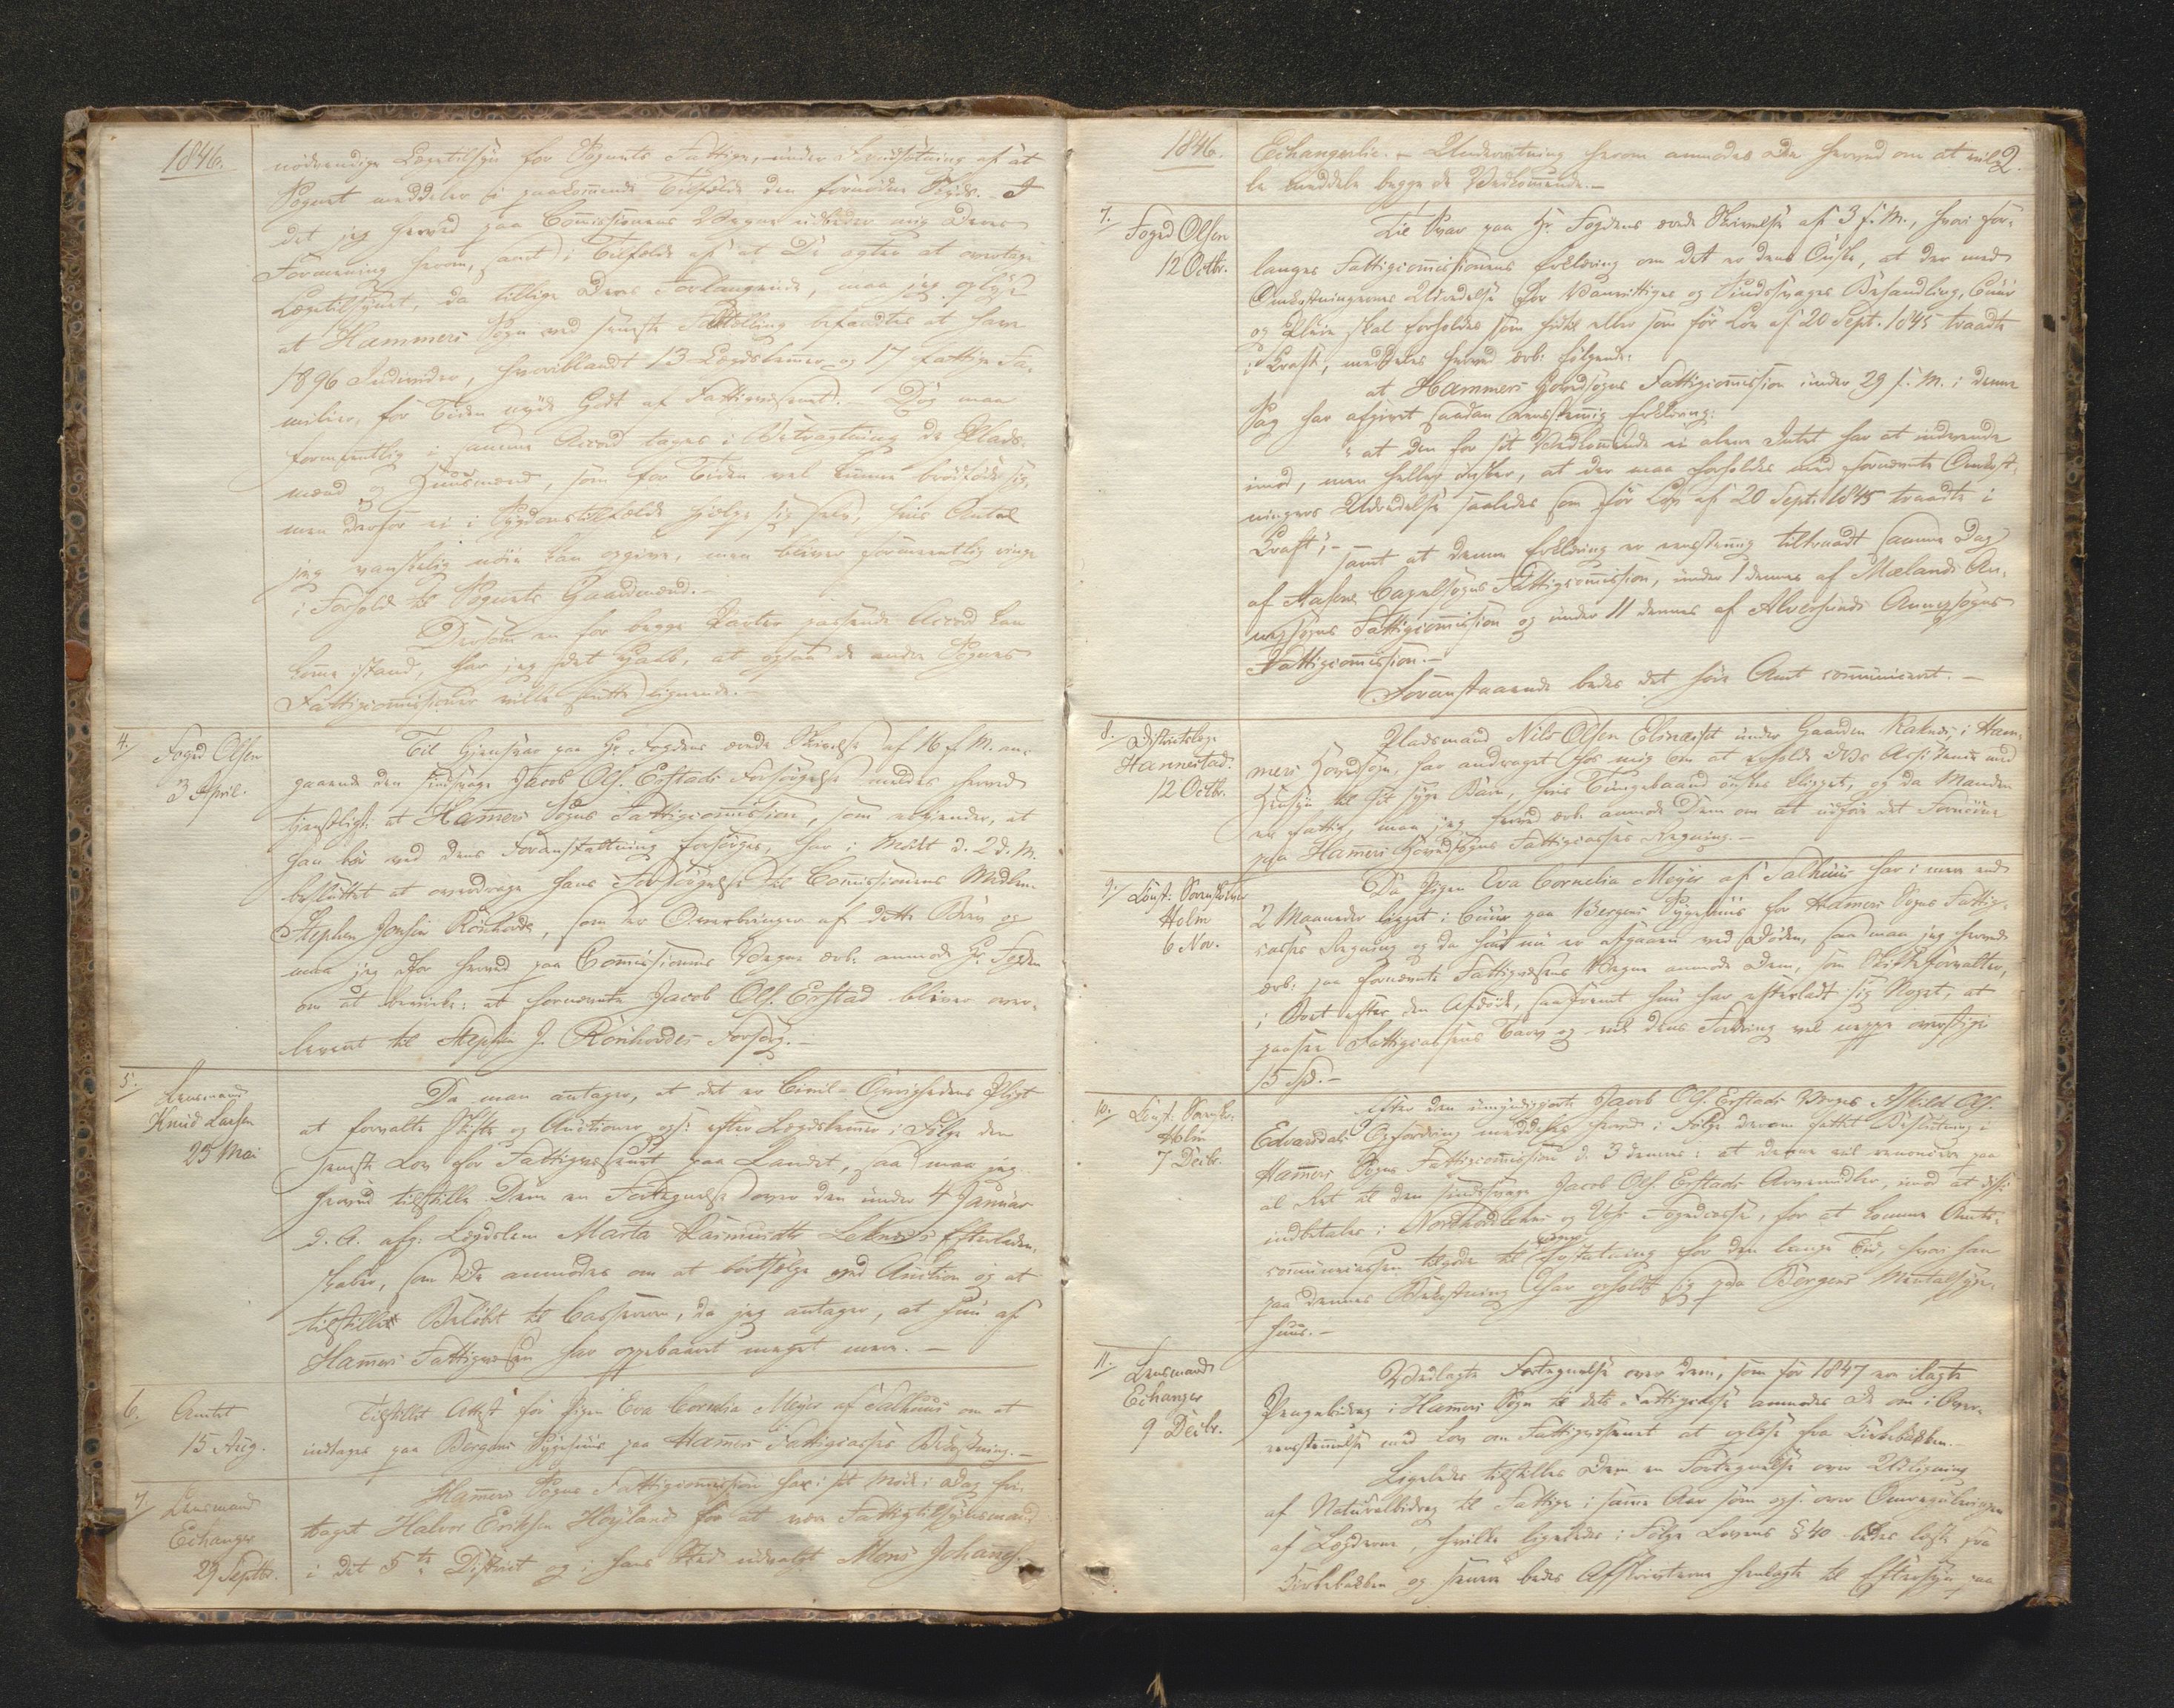 1846.
nødvendige Lægetilsyn for Sognets Fattige, under Forudsætning af at
Sognet meddeler i paakommende Tilfælde den fornødne Skyds. - I
det jeg herved paa Commissionens Vegne udbeder mig Deres
Formening herom, samt i Tilfælde af at De agter at overtage
Lægetilsynet, da tillige Deres Forlangende, maa jeg oplyse
at Hammers Sogn ved seneste Folketælling befandtes at have
1896 Individer, hvoriblandt 13 Lægdslemer og 17 fattige Fa-
milier, for Tiden nyde Godt af Fattigvæsenet. Dog maa
formeentlig i samme Accord tages i Betragtning de Plads-
mænd og Huusmænd, som for Tiden vel kunne brødføde sig,
men derfor ei i Sygdomstilfælde hjelpe sig selv, hvis Antal
jeg vanskelig nøie kan opgive, men bliver formeentlig ringe
i Forhold til Sognets Gaardmænd. -
Dersom en for begge Parter passende Accord kan
komme istand, har jeg det Haab, at ogsaa de andre Sognes
Fattigcommissioner ville slutte lignende. -
4. Foged Olsen
3 April.
Til Gjensvar paa Hr. Fogdens ærede Skrivelse af 16 f. M. an-
gaaende den sindsvage Jacob Ols. Erstads Forsørgelse meldes herved
tjenstligst: at Hammers Sogns Fattigcommission, som erkjender, at
han bør ved dens Foranstaltning forsørges, har i Mødet d. 2 d. M.
besluttet at overdrage hans Forsørgelse til Commissionens Medlem
Stephen Jonsen Rønhovde, som er Overbringer af dette Brev og
maa jeg derfor herved paa Commissionens Vegne ærb. anmode Hr. Fogden
om at bevirke: at fornævnte Jacob Ols. Erstad bliver over-
leveret til Stephen J. Rønhovdes Forsørg. -
5. Lensmand
Knud Larsen
25 Mai
Da man antager, at det er Civil-Øvrighedens Pligt
at forvalte Skifte og Auctioner ogs. efter Lægdslemmer i Følge den
seneste Lov for Fattigvæsenet paa Landet, saa maa jeg
herved tilstille Dem en Fortegnelse over den under 4 Januar
d. A. afg. Lægdslem Marta Rasmusdtr Leknæs's Efterladen-
skaber, som De anmodes om at bortsælge ved Auction og at
tilstille Beløbet til Cassereren, da jeg antager, at hun af
Hammers Fattigvæsen har oppebaaret meget mere. -
6. Amtet
15 Aug.
Tilstillet Attest for Pigen Eva Cornelia Meyer af Salhuus om at
indtages paa Bergens Sygehuus paa Hammers Fattigcasses Bekostning. -
7. Lensmand
Echanger
29 Septbr.
Hammers Sogns Fattigcommission har i sit Møde i Dag fri-
taget Halvor Eriksen Høyland for at være Fattigtilsynsmand
i det 5te District og i hans Sted udvalgt Mons Johannes.
1846.
2.
Echangerlie. - Underretning herom anmodes De herved om at vil-
le meddele begge de Vedkommende. -
7. Foged Olsen
12 Octbr.
Til Svar paa Hr. Fogdens ærede Skrivelse af 3 f. M., hvori for-
langes Fattigcommissionens Erklæring om det er dens Ønske, at der med
Omkostningernes Udredelse for Vanvittiges og Sindssvages Behandling, Cuur
og Pleie skal forholdes som hidtil eller som før Lov af 20 Sept. 1845 traadte
i Kraft, meddeles herved ærb. følgende:
at Hammers Hovedsogns Fattigcommission under 29 f. M. i denne
Sag har afgivet saadan eensstemmig Erklæring:
"at den for sit Vedkommende ei alene Intet har at indvende
imod, men heller ønsker, at der maa forholdes med fornævnte Omkost-
ningers Udredelse saaledes som før Lov af 20 Sept. 1845 traadte i
Kraft", -
samt at denne Erklæring er eensstemmig tiltraadt samme Dag
af Aasene Capelsogns Fattigcommission, under 1 dennes af Mælands An-
nexsogns Fattigcommission og under 11 dennes af Alversunds Annexsogns
Fattigcommission. -
Foranstaaende bedes det høie Amt communiceret. -
8. Districtslæge
Hannestad.
12 Octbr.
Pladsmand Nils Olsen under Gaarden Kaland i Ham-
mers Hovedsogn, har andraget hos mig om at erholde Deres med
Hensyn til sit syge Barn, hvis Tungebaand ønskes klippet, og da Manden
er fattig, maa jeg herved ærb. anmode Dem om at udføre det Fornødne
paa Hammers Hovedsogns Fattigcasses Regning. -
9. Const. Sorenskriver
Holm
6 Nov.
Da Pigen Eva Cornelia Meyer af Salhuus har i mere end
2 Maaneder ligget i Cuur paa Bergens Sygehuus for Hammers Sogns Fattig-
casses Regning og da hun nu er afgaaen ved Døden, saa maa jeg herved
ærb. paa fornævnte Fattigvæsens Vegne anmode Dem, som Skifteforvalter,
i Boet efter den Afdøde, saafremt hun har efterladt sig Noget, at
paasee Fattigcassens Tarv og vil dens Fordring vel neppe overstige
15 Spd. -
10. Const. Sorskr.
Holm
7 Decbr.
Efter den umyndiggjorte Jacob Ols. Erstads Værges Ols.
Edvardsdals Opfordring meddeles herved i Følge derom fattet Beslutning i
Hammers Sogns Fattigcommission d. 3 dennes: at denne vil renoncere paa
al Ret til den sindssvage Jacob Ols. Erstads Arvemidler, imod at disse
indbetales i Nordhordlehns og Voss Fogedcasse, for at komme Amts-
communecassen tilgode til Erstatning for den lange Tid, hvori han
paa dennes Bekostning har opholdt sig paa Bergens Mentalsyge-
huus. -
11. Lensmand
Echanger
9 Decbr.
Vedlagte Fortegnelse over dem, som for 1847 ere ilagte
Pengebidrag i Hammers Sogn til dets Fattigcasse anmodes De om i Over-
eensstemmelse med Lov om Fattigvæsenet at oplæse fra Kirkebakken. -
Ligeledes tilstilles Dem en Fortegnelse over Udligning
af Naturalbidrag til Fattige i samme Aar som ogs. over Omreguleringen
af Lægderne, hvilke ligeledes i Følge Lovens § 40 bedes læste fra
Kirkebakken og senere bedes Afskrifterne henlagte til Eftersyn paa